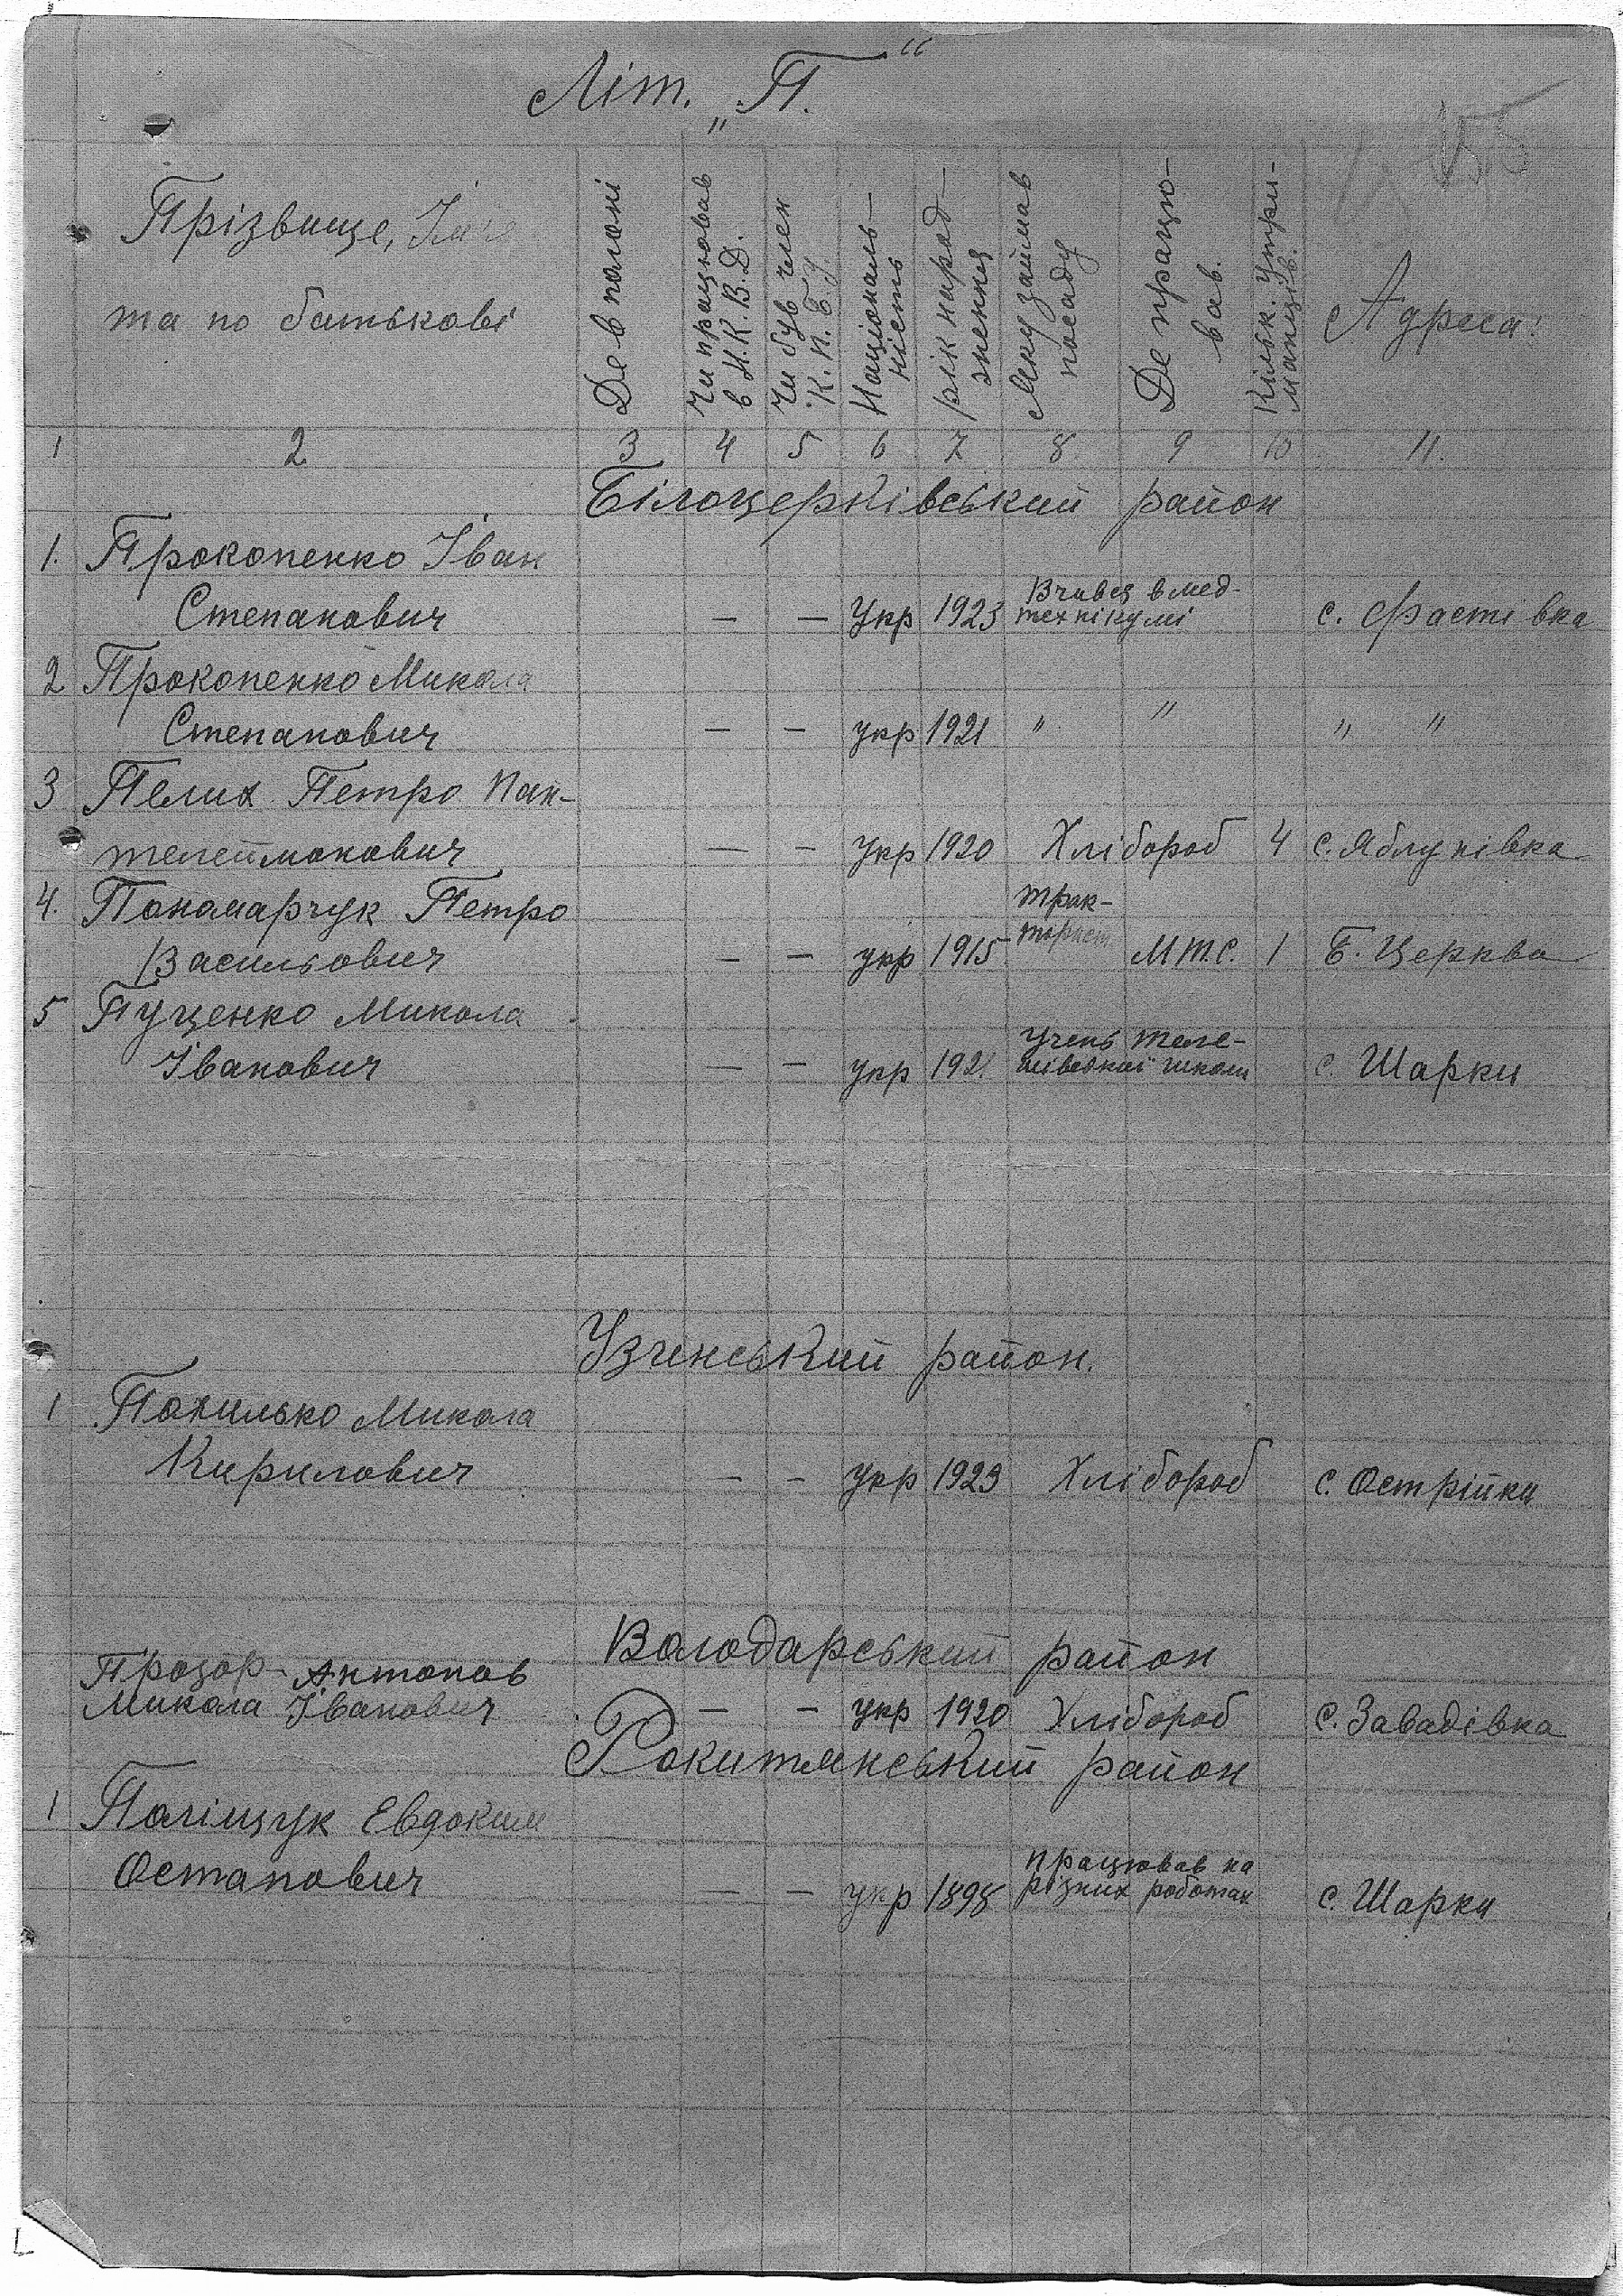 Літ. „П."
155
Прізвище, Ім'я
та по батькові
Де в полоні
Чи працював
в Н.К.В.Д.
Чи був член
К.П.б.У
Національ-
ність
рік народ-
ження
Яку займав
посаду
Де працю-
вав.
Кільк. Утри-
манців.
Адреса:
1 2 3 4 5 6 7 8 9 10 11.
Білоцерківський район
1. Прокопенко Іван
Степанович — — Укр 1923 Вчився в мед-
технікумі с. Фастівка
2 Прокопенко Микола
Степанович — — укр 1921 " " " "
3 Пелих Петро Пан-
телеймонович — — Укр 1920 Хлібороб 4 с. Яблунівка
4. Пономарчук Петро
Васильович — — укр 1915 трак-
торист М.Т.С. 1 Б. Церква
5 Пуценко Микола
Іванович — — укр 192 Учень
школи с. Шарки
Узинський район.
1 Похилько Микола
Кирилович — — укр 1923 Хлібороб с. Острійки
Володарський район
Прозор-Антонов
Микола Іванович — — укр 1920 Хлібороб с. Завадівка
Рокитянський район
1 Поліщук Евдоким
Остапович — — укр 1898 працював на
різних роботах с. Шарки